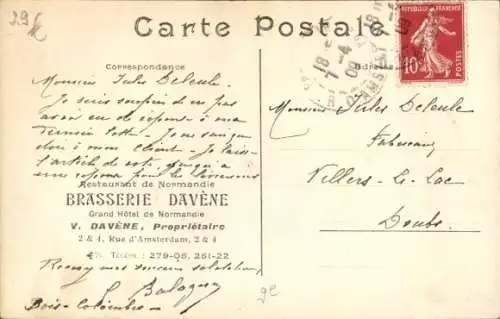 29€
Carte Postale
Correspondance
Adresse
RÉPUBLIQUE FRANÇAISE
10c
POSTES
18
7-4
09
AMSTERDAM
Monsieur Jules Deleule
Je suis surpris de ne pas
avoir eu de réponse à ma
dernière lettre - Je ne sais que
dire à mon client - Je laisse
l'article de côté jusqu'à
Restaurant de Normandie
BRASSERIE DAVÈNE
Grand Hôtel de Normandie
V. DAVÈNE, Propriétaire
2 & 4, Rue d'Amsterdam, 2 & 4
Téléph. : 279-05, 261-22
Recevez mes sincères salutations
Balagny
Bois-Colombes
Monsieur Jules Deleule
Fabricant
Villers-le-Lac
Doubs
9€